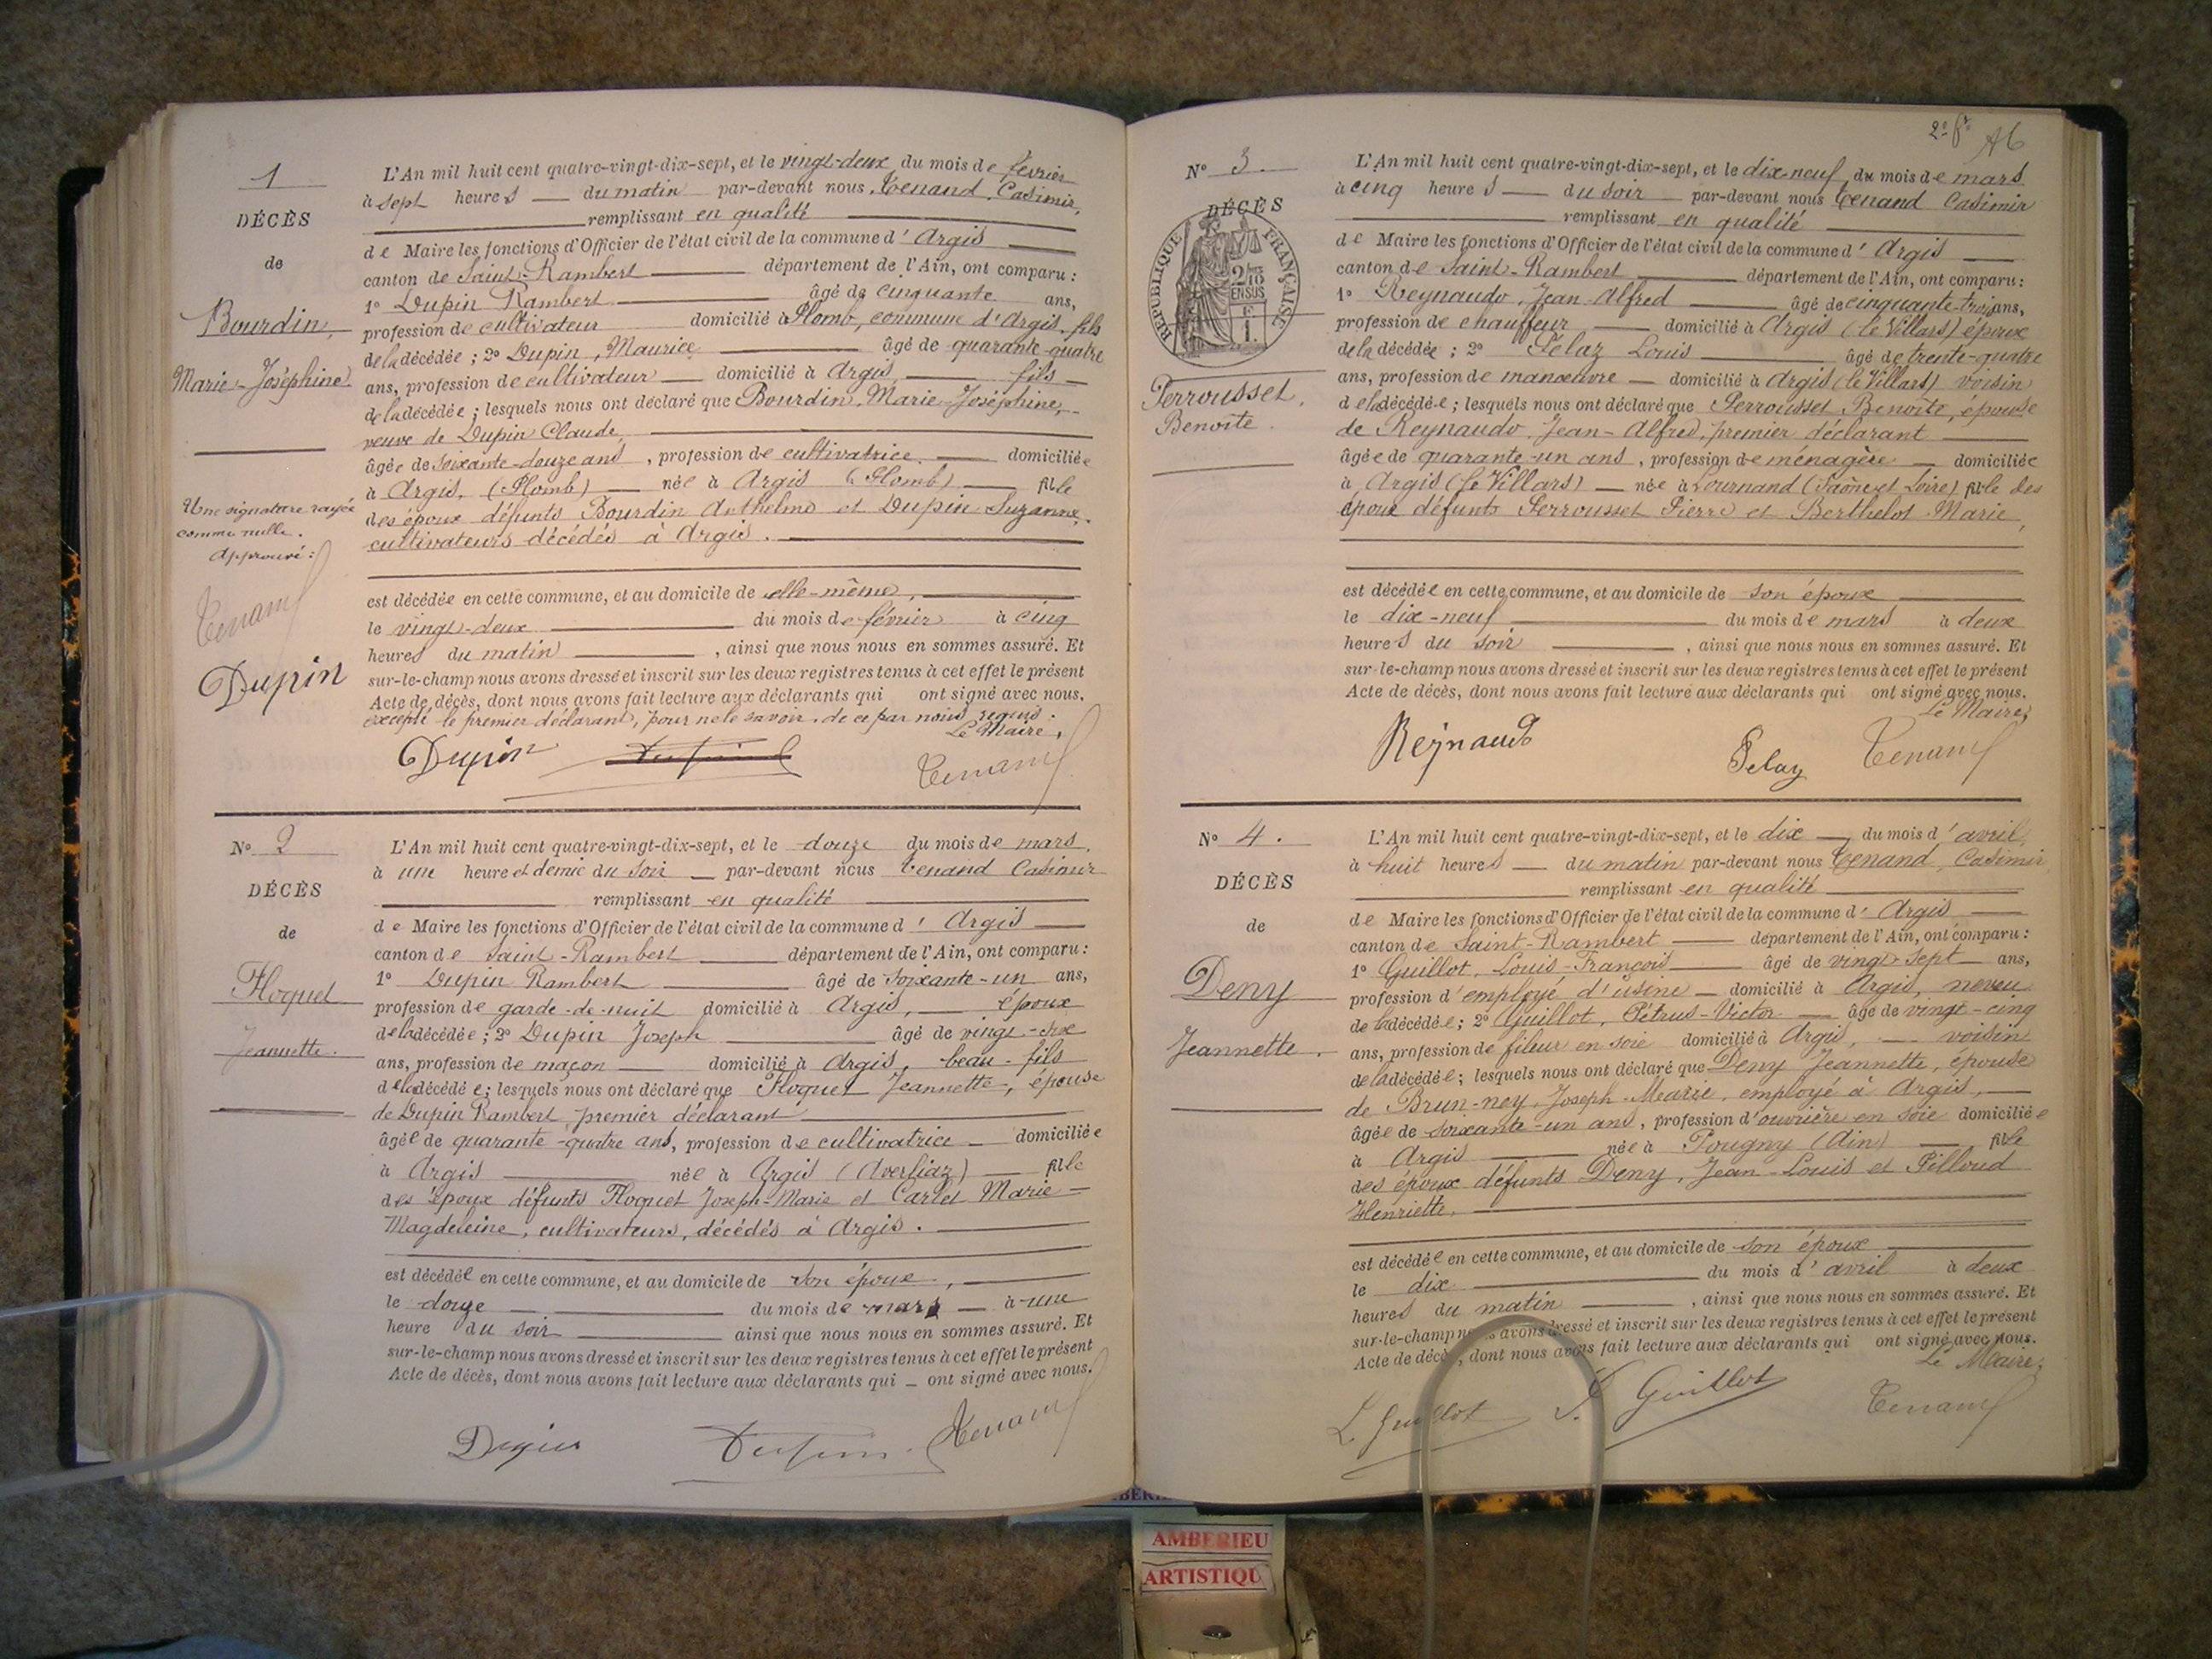 1
DÉCÈS
de
Bourdin,
Marie-Joséphine
Une signature rayée
comme nulle.
Approuvé :
Tenand
Dupin
L'An mil huit cent quatre-vingt-dix-sept, et le vingt-deux du mois de février
à sept heures du matin par-devant nous Tenand, Casimir,
remplissant en qualité
de Maire les fonctions d'Officier de l'état civil de la commune d'Argis
canton de Saint-Rambert département de l'Ain, ont comparu :
1º Dupin Rambert âgé de cinquante ans,
profession de cultivateur domicilié à Plomb, commune d'Argis, fils
de la décédée ; 2º Dupin, Maurice, âgé de quarante-quatre
ans, profession de cultivateur domicilié à Argis, fils
de la décédée ; lesquels nous ont déclaré que Bourdin, Marie-Joséphine,
veuve de Dupin Claude,
âgée de soixante-douze ans, profession de cultivatrice domiciliée
à Argis, (Plomb) née à Argis (Plomb) fille
des époux défunts Bourdin Anthelme et Dupin Suzanne,
cultivateurs décédés à Argis.
est décédée en cette commune, et au domicile de elle-même,
le vingt-deux du mois de février à cinq
heures du matin, ainsi que nous nous en sommes assuré. Et
sur-le-champ nous avons dressé et inscrit sur les deux registres tenus à cet effet le présent
Acte de décès, dont nous avons fait lecture aux déclarants qui ont signé avec nous,
excepté le premier déclarant, pour ne le savoir, de ce par nous requis.
Le Maire,
Dupin Tenand
Nº 2
DÉCÈS
de
Floquet
Jeannette.
L'An mil huit cent quatre-vingt-dix-sept, et le douze du mois de mars,
à une heure et demie du soir par-devant nous Tenand Casimir
remplissant en qualité
de Maire les fonctions d'Officier de l'état civil de la commune d'Argis
canton de Saint-Rambert département de l'Ain, ont comparu :
1º Dupin Rambert âgé de soixante-un ans,
profession de garde-de-nuit domicilié à Argis, époux
de la décédée ; 2º Dupin Joseph âgé de vingt-six
ans, profession de maçon domicilié à Argis, beau-fils
de la décédée ; lesquels nous ont déclaré que Floquet Jeannette, épouse
de Dupin Rambert, premier déclarant
âgée de quarante-quatre ans, profession de cultivatrice domiciliée
à Argis née à Argis (Averliaz) fille
des époux défunts Floquet Joseph-Marie et Carlet Marie-
Magdeleine, cultivateurs, décédés à Argis.
est décédée en cette commune, et au domicile de son époux,
le douze du mois de mars à une
heure du soir ainsi que nous nous en sommes assuré. Et
sur-le-champ nous avons dressé et inscrit sur les deux registres tenus à cet effet le présent
Acte de décès, dont nous avons fait lecture aux déclarants qui ont signé avec nous.
Dupin Dupin Tenand
2e fo
Nº 3.
DÉCÈS
RÉPUBLIQUE FRANÇAISE
2/10
EN SUS
Perrousset,
Benoîte.
L'An mil huit cent quatre-vingt-dix-sept, et le dix-neuf du mois de mars
à cinq heures du soir par-devant nous Tenand Casimir
remplissant en qualité
de Maire les fonctions d'Officier de l'état civil de la commune d'Argis
canton de Saint-Rambert département de l'Ain, ont comparu :
1º Reynaudo, Jean-Alfred âgé de cinquante-trois ans,
profession de chauffeur domicilié à Argis (le Villars) époux
de la décédée ; 2º Pelaz Louis âgé de trente-quatre
ans, profession de manœuvre domicilié à Argis (le Villars) voisin
de la décédée ; lesquels nous ont déclaré que Perrousset Benoîte, épouse
de Reynaudo, Jean-Alfred, premier déclarant
âgée de quarante-un ans, profession de ménagère domiciliée
à Argis (le Villars) née à Lournand (Saône et Loire) fille des
époux défunts Perrousset Pierre et Berthelot Marie,
est décédée en cette commune, et au domicile de son époux
le dix-neuf du mois de mars à deux
heures du soir, ainsi que nous nous en sommes assuré. Et
sur-le-champ nous avons dressé et inscrit sur les deux registres tenus à cet effet le présent
Acte de décès, dont nous avons fait lecture aux déclarants qui ont signé avec nous.
Le Maire,
Reynaudo Pelaz Tenand
Nº 4.
DÉCÈS
de
Deny
Jeannette.
L'An mil huit cent quatre-vingt-dix-sept, et le dix du mois d'avril,
à huit heures du matin par-devant nous Tenand, Casimir
remplissant en qualité
de Maire les fonctions d'Officier de l'état civil de la commune d'Argis
canton de Saint-Rambert département de l'Ain, ont comparu :
1º Guillot, Louis-François âgé de vingt-sept ans,
profession d'employé d'usine domicilié à Argis, neveu
de la décédée ; 2º Guillot, Pétrus-Victor âgé de vingt-cinq
ans, profession de fileur en soie domicilié à Argis, voisin
de la décédée ; lesquels nous ont déclaré que Deny Jeannette, épouse
de Brun-ney, Joseph-Marie, employé à Argis,
âgée de soixante-un ans, profession d'ouvrière en soie domiciliée
à Argis née à Pougny (Ain) fille
des époux défunts Deny, Jean-Louis et Pilloud
Henriette,
est décédée en cette commune, et au domicile de son époux
le dix du mois d'avril à deux
heures du matin, ainsi que nous nous en sommes assuré. Et
sur-le-champ nous avons dressé et inscrit sur les deux registres tenus à cet effet le présent
Acte de décès, dont nous avons fait lecture aux déclarants qui ont signé avec nous.
Le Maire,
L. Guillot P. Guillot Tenand
AMBERIEU
ARTISTIQU